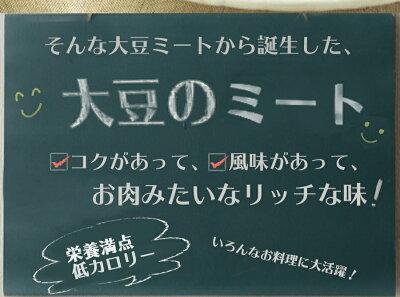 そんな大豆ミートから誕生した、
大豆のミート
コクがあって、風味があって、
お肉みたいなリッチな味！
栄養満点
低カロリー
いろんなお料理に大活躍！